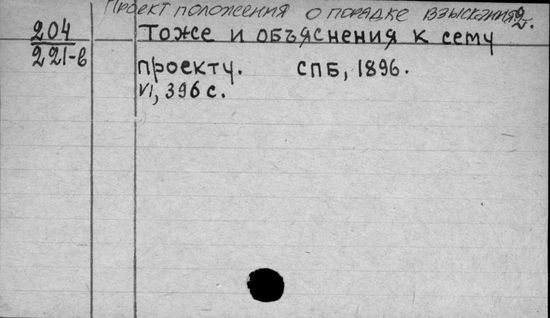 Проект положения о порядке взыскания 2.
204 Тоже и объяснения к сему
221-в проекту. СПБ, 1896.
VI, 396 с.